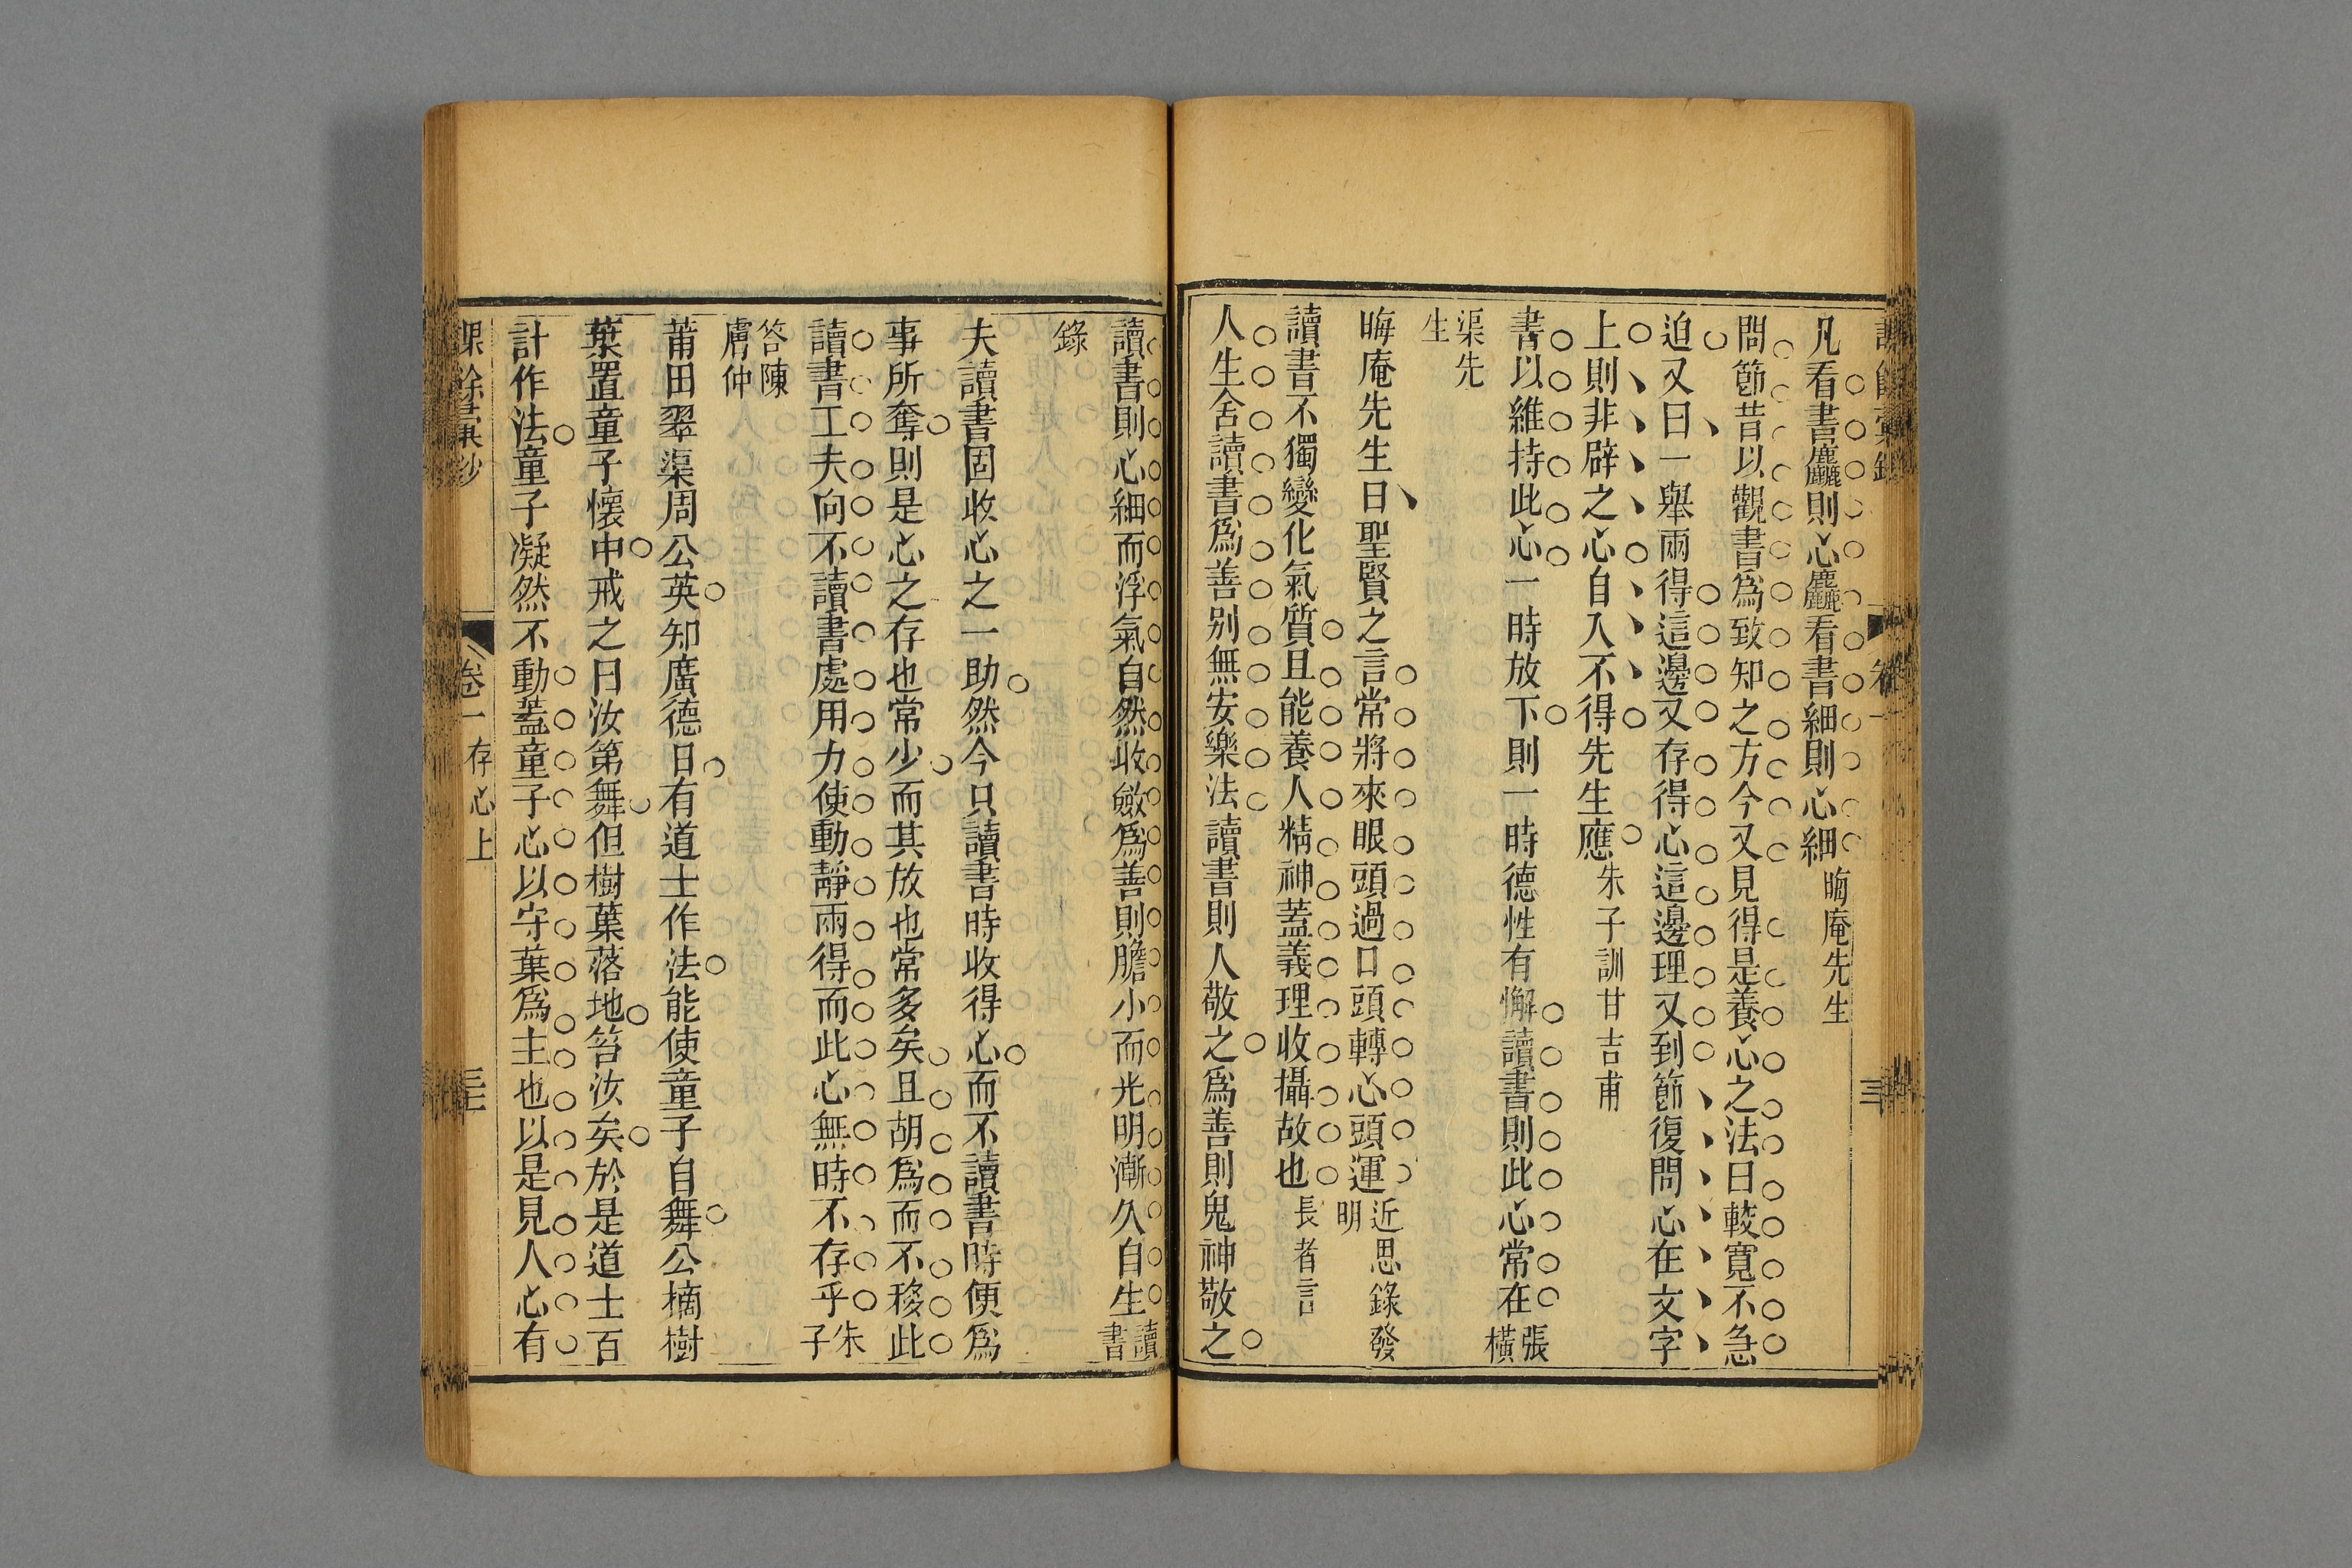 凡看書麤則心麤看書細則心細晦庵先生
問節昔以觀書爲致知之方今又見得是養心之法曰較寬不急
迫又曰一舉兩得這邊又存得心這邊理又到節復問心在文字
上則非辟之心自入不得先生應朱子訓甘吉甫
書以維持此心一時放下則一時德性有懈讀書則此心常在張橫
渠先生
晦庵先生曰聖賢之言常將來眼頭過口頭轉心頭運近思錄發明
讀書不獨變化氣質且能養人精神蓋義理收攝故也長者言
人生舍讀書爲善別無安樂法讀書則人敬之爲善則鬼神敬之
讀書則心細而浮氣自然收斂爲善則膽小而光明漸久自生讀書
錄
夫讀書固收心之一助然今只讀書時收得心而不讀書時便爲
事所奪則是心之存也常少而其放也常多矣且胡爲而不移此
讀書工夫向不讀書處用力使動靜兩得而此心無時不存乎朱子
答陳膚仲
莆田翠渠周公英知廣德日有道士作法能使童子自舞公摘樹
葉置童子懷中戒之曰汝第舞但樹葉落地笞汝矣於是道士百
計作法童子凝然不動蓋童子心以守葉爲主也以是見人心有
課餘彙鈔
卷一 存心上
三